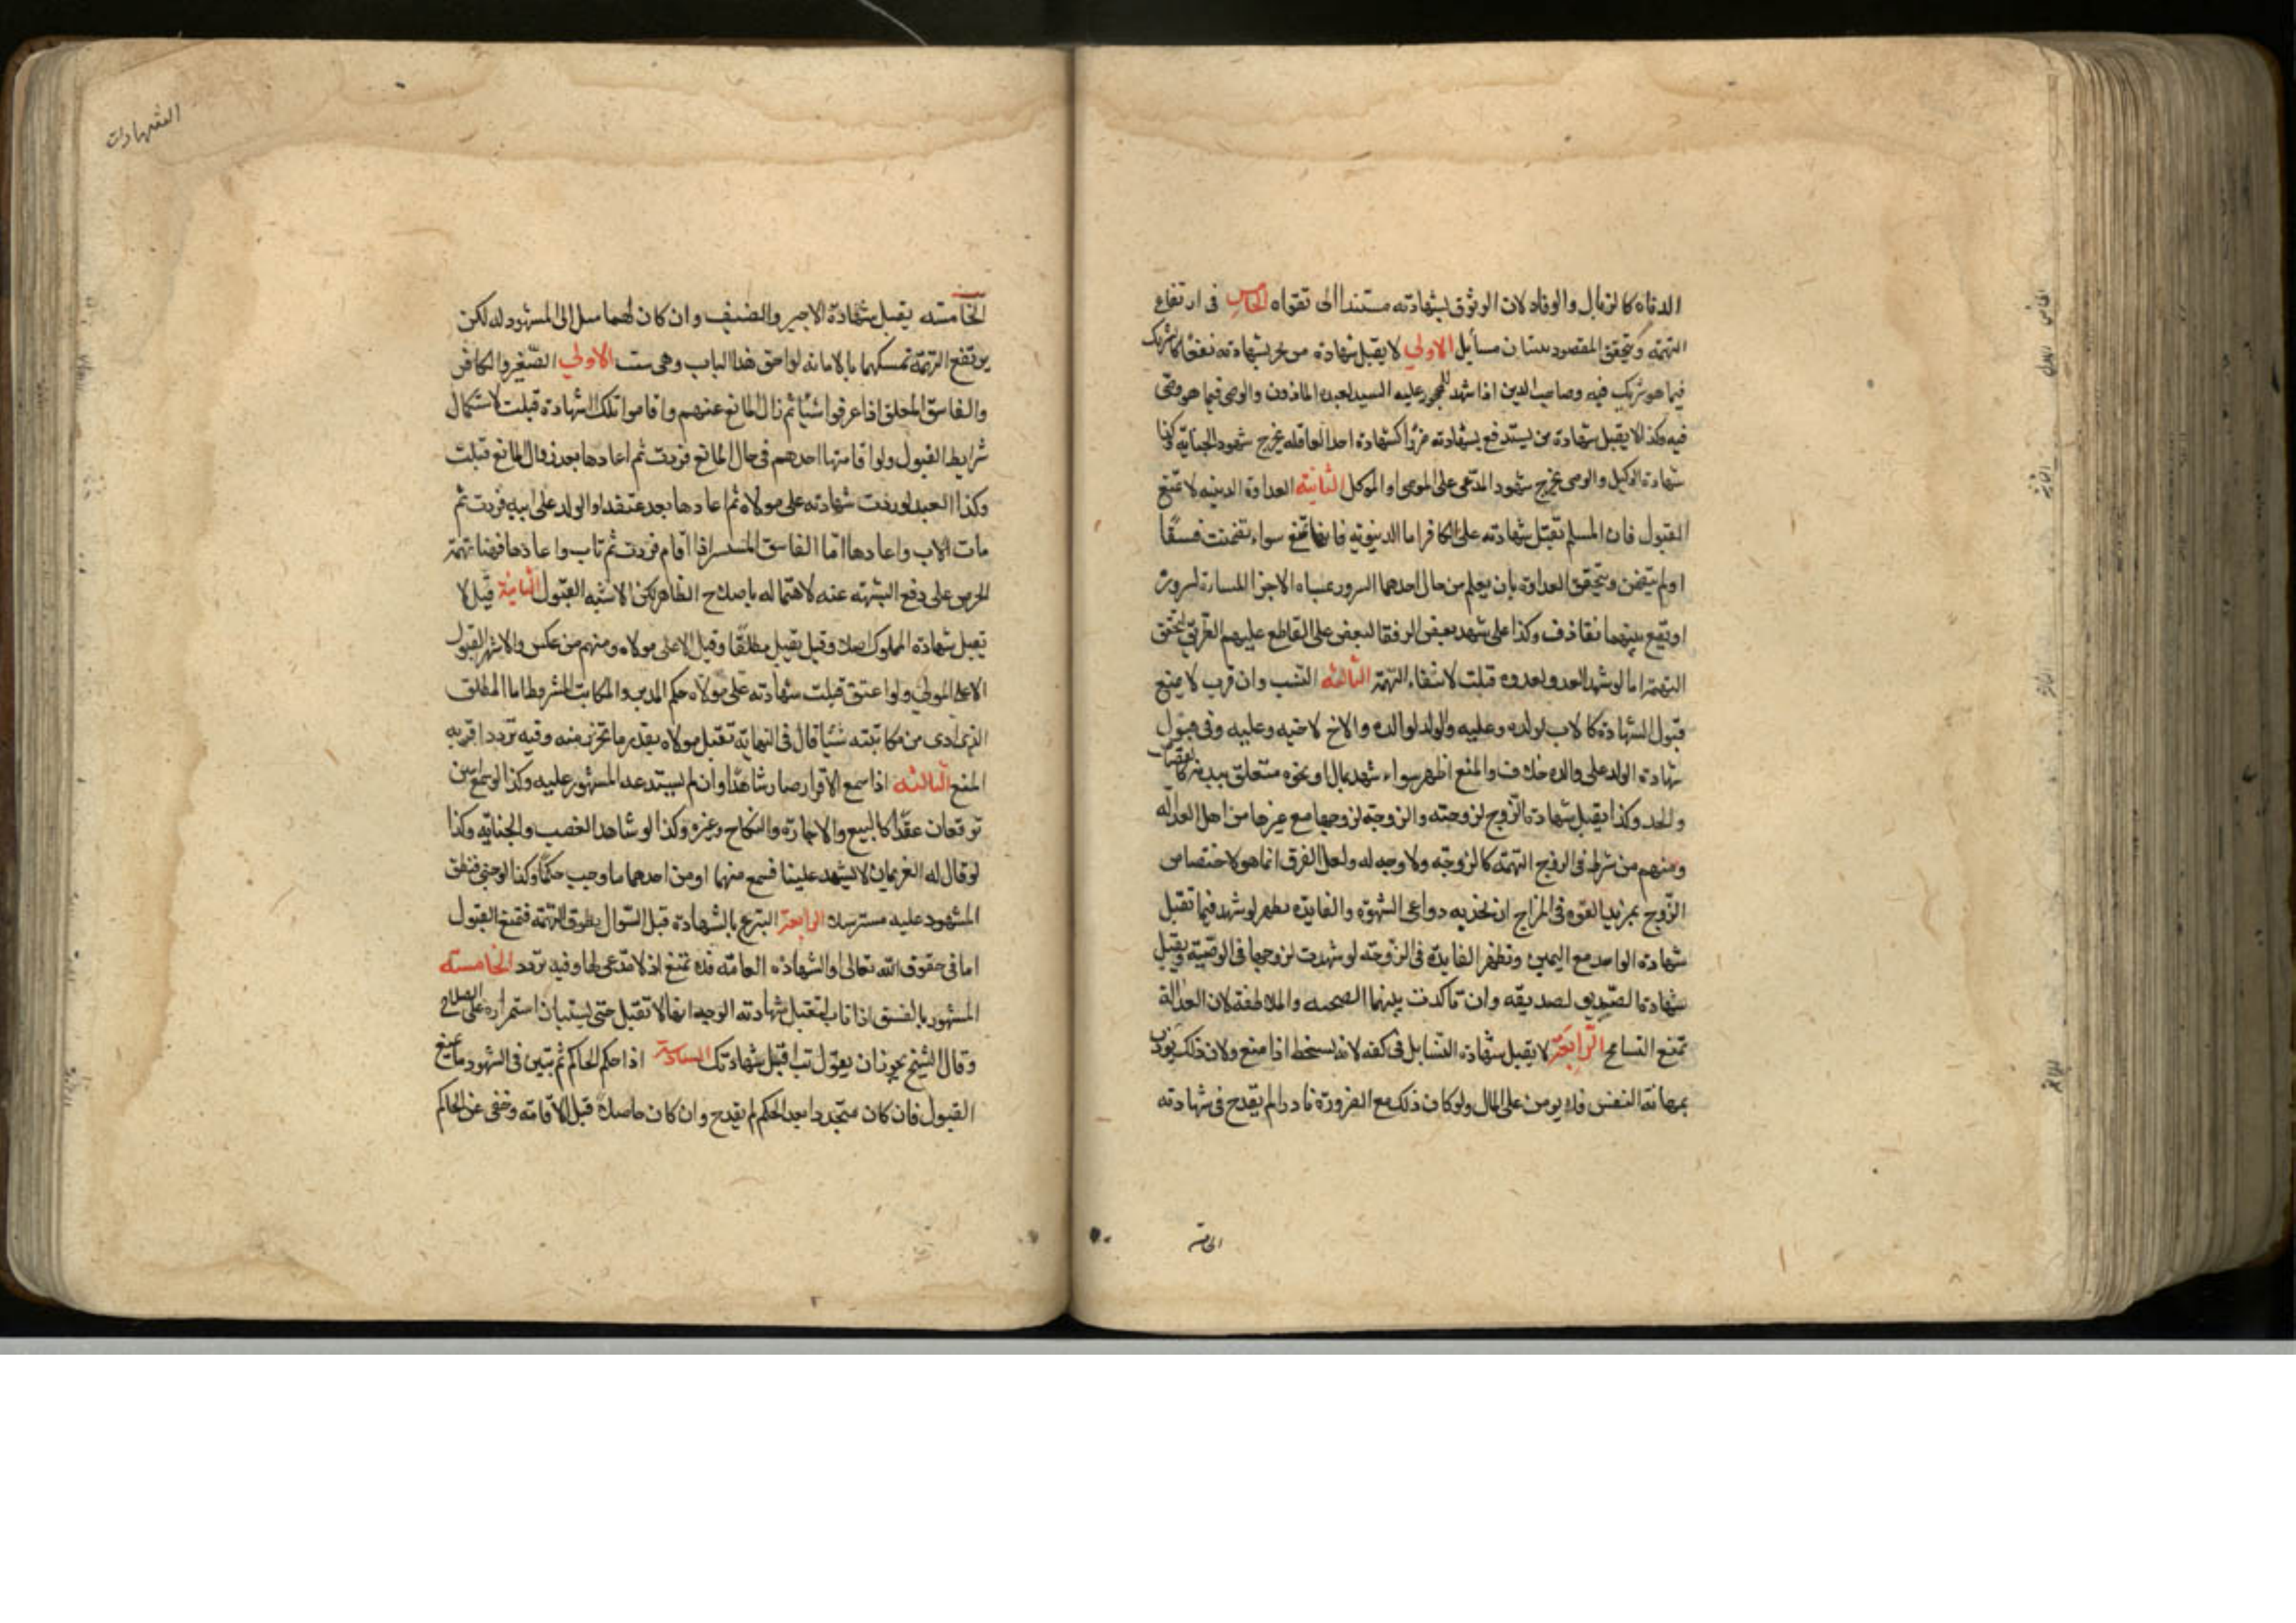 الدناه كالزبال والوقاد لان الوثوق بشهادته مستندا الى تقواه الخامس فى ارتفاع
التهمة ويتحقق المقصود ببيان مسايل الاولى لا يقبل شهادة من يجر بشهادته نفعا كالشريك
فيما هو شريك فيه وصاحب الدين اذا شهد للمحجور عليه السيد لعبده الماذون والوصى فيما هو وصى
فيه وكذا لا يقبل شهادة من يستدفع بشهادته ضررا كشهادة احد العاقله بجرح شهود الجنايه وكذا
شهادة الوكيل والوصى بجرح شهود المدعى على الموصى او الموكل الثانية العداوة الدينيه لا تمنع
القبول فان المسلم تقبل شهادته على الكافر اما الدنيويه فانها تمنع سواء تضمنت فسقا
او لم يتضمن ويتحقق العداوة بان يعلم من حال احدهما السرور بمساه الاخر والمساءة بسروره
او يقع بينهما تقاذف وكذا لو شهد بعض الرفقا لبعض على القاطع عليهم الطريق لتحقق
التهمة اما لو شهد العدو لعدوه قبلت لانتفاء التهمة الثالثه النسب وان قرب لا يمنع
قبول الشهادة كالاب لولده وعليه والولد لوالده والاخ لاخيه وعليه وفى قبول
شهادة الولد على والده خلاف والمنع اظهر سواء شهد بمال او بحق متعلق ببدنه كالقصاص
والحد وكذا يقبل شهادة الزوج لزوجته والزوجة لزوجها مع غيرها من اهل العداله
ومنهم من شرط فى الزوج التهمة كالزوجه ولا وجه له ولعل الفرق انما هو لاختصاص
الزوج بمزيد القوه فى المزاج ان تجذبه دواعى الشهوة والفايده تظهر لو شهد فيما تقبل
شهادة الواحد مع اليمين وتظهر الفايدة فى الزوجه لو شهدت لزوجها فى الوصية ويقبل
شهادة الصديق لصديقه وان تاكدت بينهما الصحبه والملاطفة لان العدالة
تمنع التسامح الرابعة لا يقبل شهادة السايل فى كفه لانه يسخط اذا منع ولان ذلك يوذن
بمهانة النفس فلا يومن على المال ولو كان ذلك مع الضرورة نادرا لم يقدح فى شهادته
الخامسه
الشهادات
الخامسه يقبل شهادة الاجير والضيف وان كان لهما ميل الى المشهود له لكن
يرتفع التهمة تمسكهما بالامانه لواحق هذا الباب وهى ست الاولى الصغير والكافر
والفاسق المعلن اذا عرفوا شيئا ثم زال المانع عنهم واقاموا تلك الشهادة قبلت لاستكمال
شرايط القبول ولو اقامها احدهم فى حال المانع فردت ثم اعادها بعد زوال المانع قبلت
وكذا العبد لو ردت شهادته على مولاه ثم اعادها بعد عتقه او الولد على ابيه فردت ثم
مات الاب واعادها اما الفاسق المستسر اذا اقام فردت ثم تاب واعادها فهنا تهمة
الحرص على دفع الشبهه عنه لاهتماله باصلاح الظاهر لكن الاشبه القبول الثانية قيل لا
تقبل شهادة المملوك اصلا وقيل يقبل مطلقا وقيل الا على مولاه ومنهم من عكس والاشهر القبول
الا على المولى ولو اعتق قبلت شهادته على مولاه حكم المدبر والمكاتب المشروط اما المطلق
اذا ادى من مكاتبته شيئا قال فى النهاية تقبل على مولاه بقدر ما تحرر منه وفيه تردد اقربه
المنع الثالثه اذا سمع الاقرار صار شاهدا وان لم يستدعه المشهود عليه وكذا لو سمع اثنين
توقعان عقدا كالبيع والاجارة والنكاح وغيره وكذا لو شاهد الغصب والجنايه وكذا
لو قال له الغريمان لا تشهد علينا فسمع منهما او من احدهما ما وجب حكما وكذا لو خبى فنطق
المشهود عليه مسترسلا الرابعة التبرع بالشهادة قبل السوال يطرق التهمة فتمنع القبول
اما فى حقوق الله تعالى او الشهادة العامه فلا تمنع اذ لا مدعى لها وفيه تردد الخامسه
المشهور بالفسق اذا تاب لتقبل شهادته الوجه انها لا تقبل حتى يستبان استمراره على الصلاح
وقال الشيخ يجوز ان يقول تب اقبل شهادتك السادسة اذا حكم الحاكم ثم تبين فى الشهود ما يمنع
القبول فان كان متجددا بعد الحكم لم يقدح وان كان حاصلا قبل الاقامه وخفى عن الحاكم